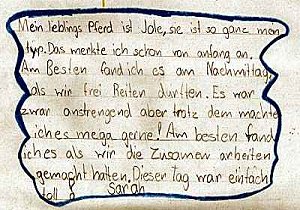 Mein leblings Pferd ist Jole, sie ist so ganz mein
typ. Das merkte ich schon von anfang an.
Am Besten fand ich es am Nachmittag,
als wir frei Reiten durften. Es war
zwar anstrengend aber trotz dem machte
iches mega gerne! Am besten fand
iches als wir die Zusamen arbeiten
gemacht hatten. Dieser Tag war einfach
toll
Sarah